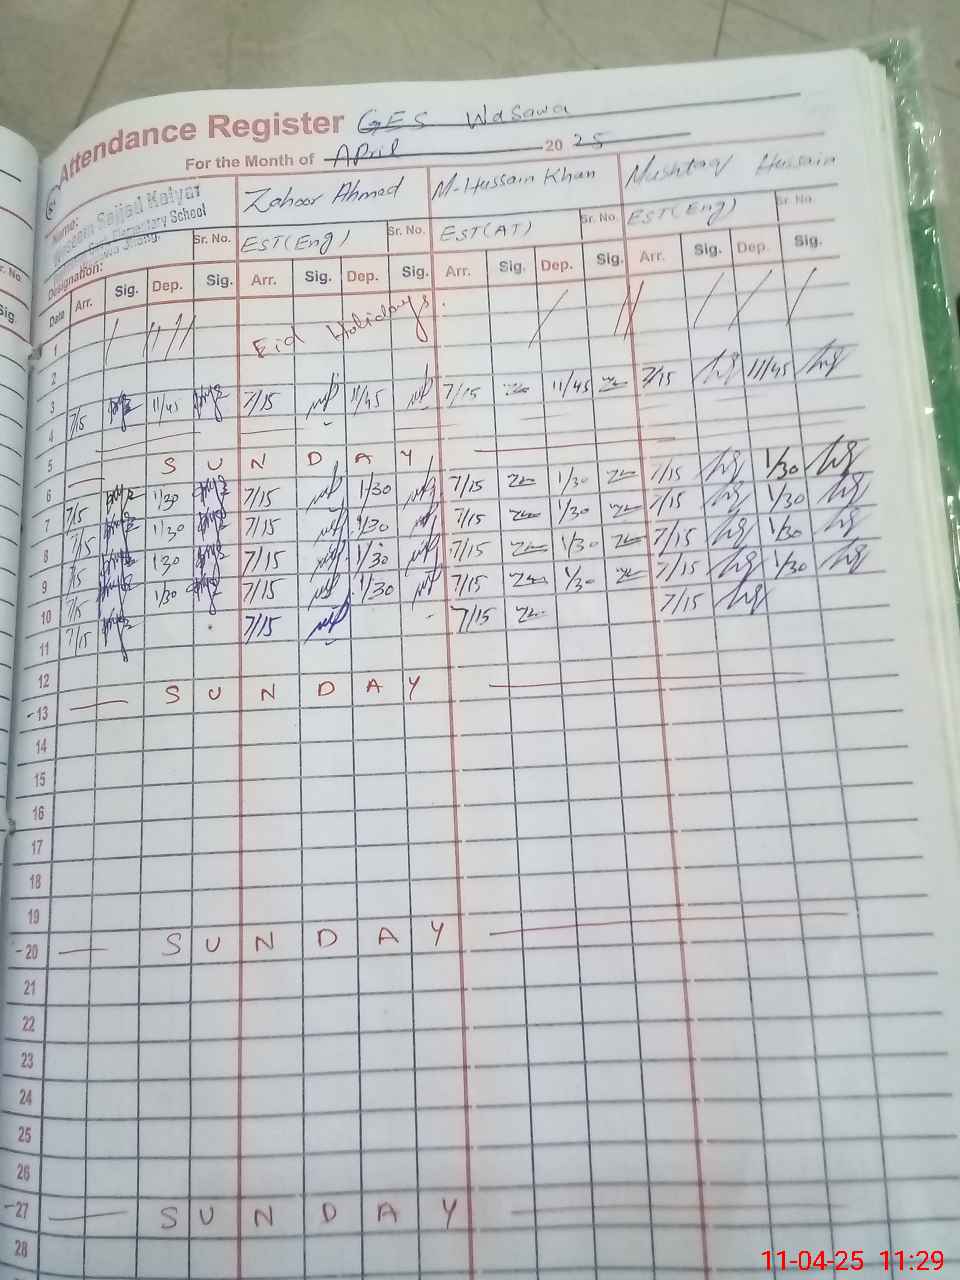 Attendance Register GES Wasawa
For the Month of April 20 25
Name: Sajjad Kalyar Zahoor Ahmed M-Hussain Khan Mushtaq Hussain
Elementary School
Designation: Sr. No. EST(Eng) Sr. No. EST(AT) Sr. No. EST(Eng) Sr. No.
Date Arr. Sig. Dep. Sig. Arr. Sig. Dep. Sig. Arr. Sig. Dep. Sig. Arr. Sig. Dep. Sig.
1 Eid Holidays
2
3 7/5 11/45 7/15 11/45 7/15 11/45 7/15 11/45
4
5 S U N D A Y
6 7/5 1/30 7/15 1/30 7/15 1/30 7/15 1/30
7 7/5 1/30 7/15 1/30 7/15 1/30 7/15 1/30
8 7/5 1/30 7/15 1/30 7/15 1/30 7/15 1/30
9 7/5 1/30 7/15 1/30 7/15 1/30 7/15 1/30
10 7/15 7/15 7/15 7/15
11
12
13 S U N D A Y
14
15
16
17
18
19
20 S U N D A Y
21
22
23
24
25
26
27 S U N D A Y
28
11-04-25 11:29